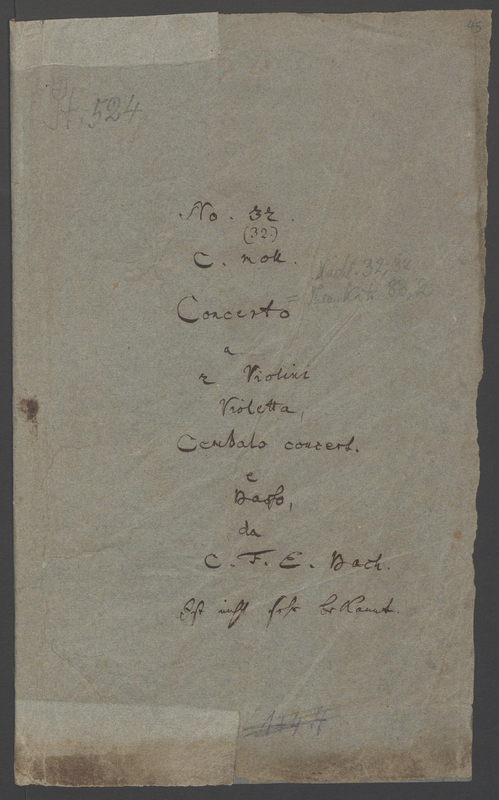 45
St. 524
No. 32.
(32.)
C. moll.
Nachl. 32,32
= Them. Kat. 88,2
Concerto
a
2 Violini
Violetta,
Cembalo concert.
e
Basso,
da
C. F. E. Bach.
Ist nicht sehr bekannt.